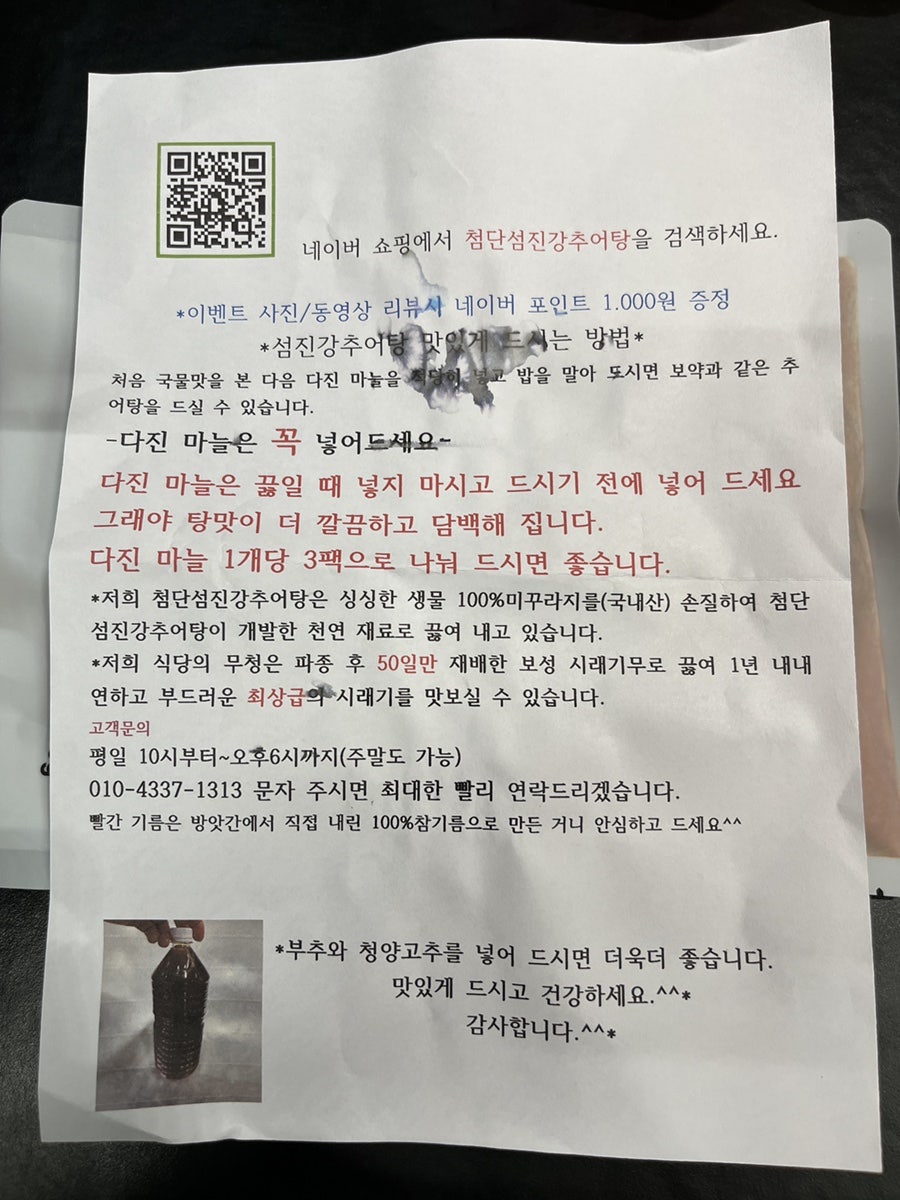 네이버 쇼핑에서 첨단섬진강추어탕을 검색하세요.
*이벤트 사진/동영상 리뷰시 네이버 포인트 1.000원 증정
*섬진강추어탕 맛있게 드시는 방법*
처음 국물맛을 본 다음 다진 마늘을 적당히 넣고 밥을 말아 드시면 보약과 같은 추
어탕을 드실 수 있습니다.
-다진 마늘은 꼭 넣어드세요-
다진 마늘은 끓일 때 넣지 마시고 드시기 전에 넣어 드세요
그래야 탕맛이 더 깔끔하고 담백해 집니다.
다진 마늘 1개당 3팩으로 나눠 드시면 좋습니다.
*저희 첨단섬진강추어탕은 싱싱한 생물 100%미꾸라지를(국내산) 손질하여 첨단
섬진강추어탕이 개발한 천연 재료로 끓여 내고 있습니다.
*저희 식당의 무청은 파종 후 50일만 재배한 보성 시래기무로 끓여 1년 내내
연하고 부드러운 최상급의 시래기를 맛보실 수 있습니다.
고객문의
평일 10시부터~오후6시까지(주말도 가능)
010-4337-1313 문자 주시면 최대한 빨리 연락드리겠습니다.
빨간 기름은 방앗간에서 직접 내린 100%참기름으로 만든 거니 안심하고 드세요^^
*부추와 청양고추를 넣어 드시면 더욱더 좋습니다.
맛있게 드시고 건강하세요.^^*
감사합니다.^^*